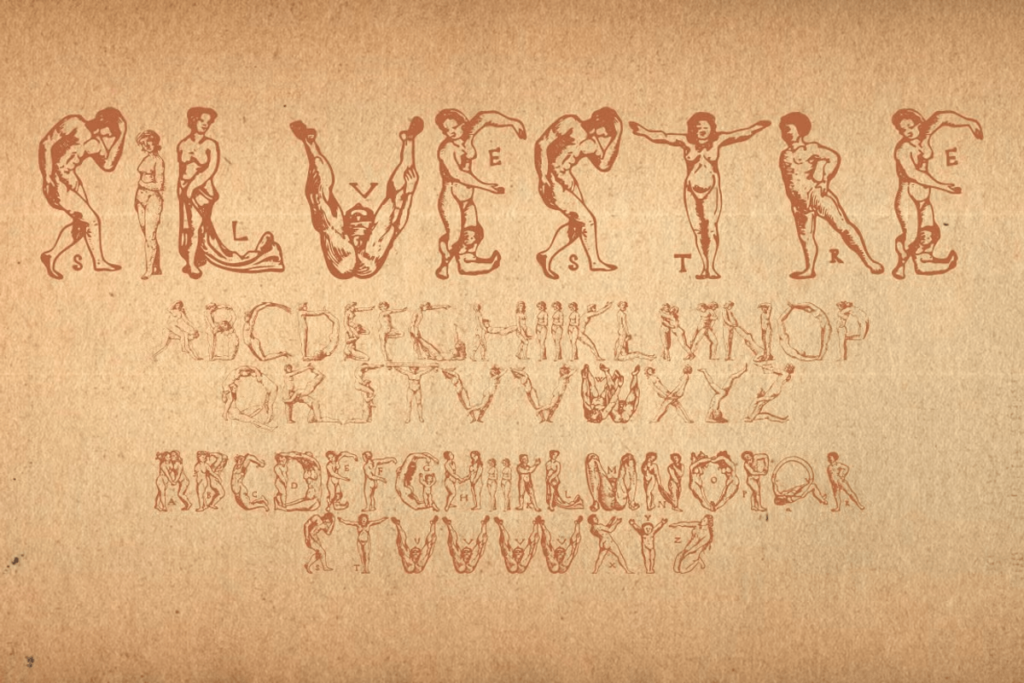 SILVESTRE
ABCDEFGHIIIKLMNOP
QRSTVVWXYZ
ABCDEFGHIIIKLMNOPQR
STVVVVXYZ